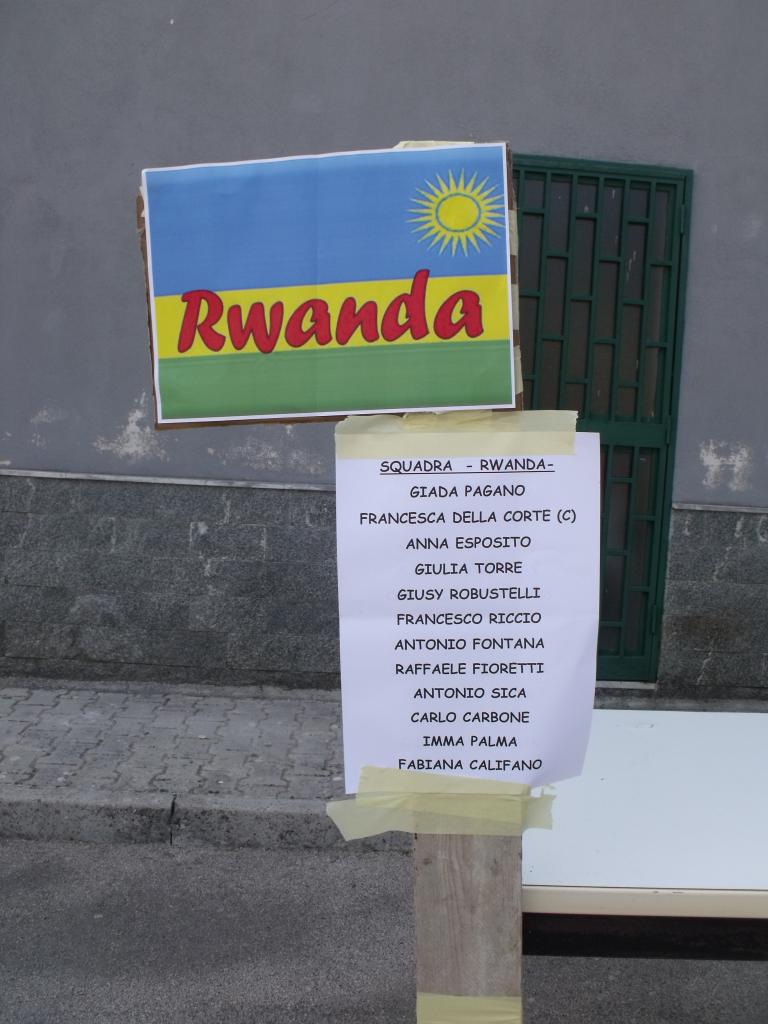 Rwanda
SQUADRA - RWANDA-
GIADA PAGANO
FRANCESCA DELLA CORTE (C)
ANNA ESPOSITO
GIULIA TORRE
GIUSY ROBUSTELLI
FRANCESCO RICCIO
ANTONIO FONTANA
RAFFAELE FIORETTI
ANTONIO SICA
CARLO CARBONE
IMMA PALMA
FABIANA CALIFANO